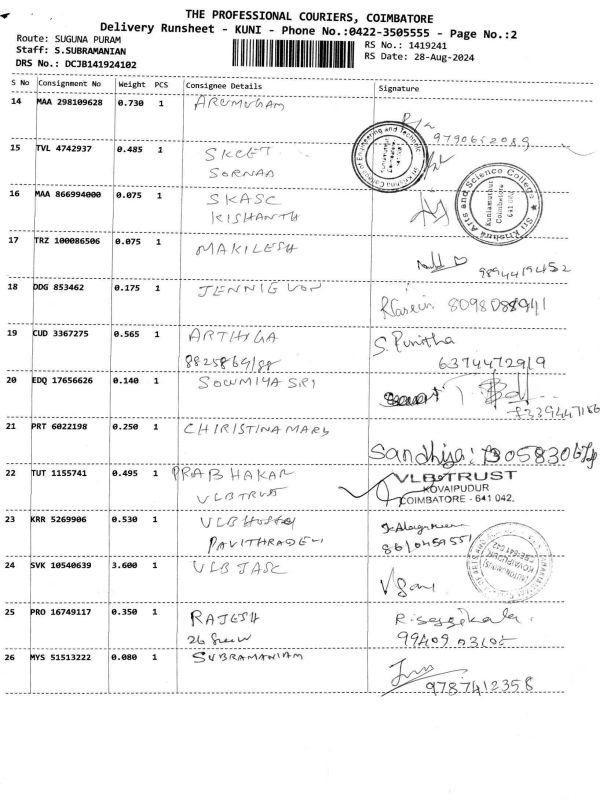 THE PROFESSIONAL COURIERS, COIMBATORE
Delivery Runsheet - KUNI - Phone No.:0422-3505555 - Page No.:2
Route: SUGUNA PURAM
Staff: S.SUBRAMANIAN
DRS No.: DCJB141924102
RS No.: 1419241
RS Date: 28-Aug-2024
S No Consignment No Weight PCS Consignee Details Signature
14 MAA 298109628 0.730 1 ARUMUGAM
9790612089
15 TVL 4742937 0.485 1 SKCET
SORNAA
16 MAA 866994000 0.075 1 SKASC
KISHANTH
Sri Krishna Arts and Science College
Kuniamuthur
Coimbatore
641 008
17 TRZ 100086506 0.075 1 MAKILESH
9894419452
18 DDG 853462 0.175 1 JENNIE
8098088941
19 CUD 3367275 0.565 1 ARTHIGA
S. Punitha
6374472919
20 EDQ 17656626 0.140 1 SOWMIYA SRI
21 PRT 6022198 0.250 1 CHIRISTINA MARY
Sandhiya:
22 TUT 1155741 0.495 1 PRABHAKAR
VLB TRUST
VLB TRUST
KOVAIPUDUR
COIMBATORE - 641 042.
23 KRR 5269906 0.530 1 VLB
PAVITHRADEVI
24 SVK 10540639 3.600 1 VLB JASC
25 PRO 16749117 0.350 1 RAJESH
R. Sasikala
26 MYS 51513222 0.080 1 SUBRAMANIAM
9787412358